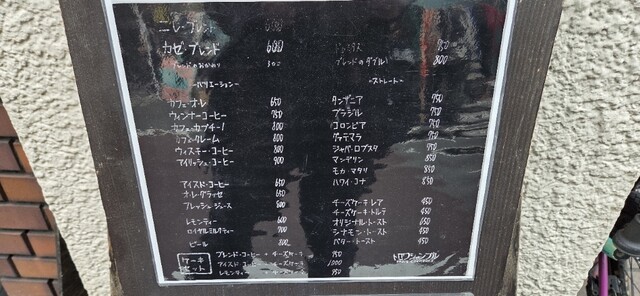 ニレ・ブレンド 600
カゼ・ブレンド 600
ブレンドのおかわり 300
ブレンドのダブル 800
〜バリエーション〜
〜ストレート〜
カフェ・オ・レ 650
ウィンナーコーヒー 750
カフェ・カプチーノ 800
カフェ・クレーム 800
ウィスキー・コーヒー 800
アイリッシュ・コーヒー 900
タンザニア 750
ブラジル 750
コロンビア 750
グァテマラ 750
ジャバ・ロブスタ 750
マンデリン 850
モカ・マタリ 850
ハワイ・コナ 850
アイスド・コーヒー 650
オ・レ・グラッセ 650
フレッシュジュース 800
レモンティー 600
ロイヤルミルクティー 700
ビール 800
チーズケーキ レア 450
チーズケーキ・トルテ 450
オリジナル・トースト 650
シナモン・トースト 450
バター・トースト 450
ケーキセット
ブレンド・コーヒー + チーズケーキ 950
アイスド コーヒー + チーズケーキ 1000
レモンティー + チーズケーキ 950